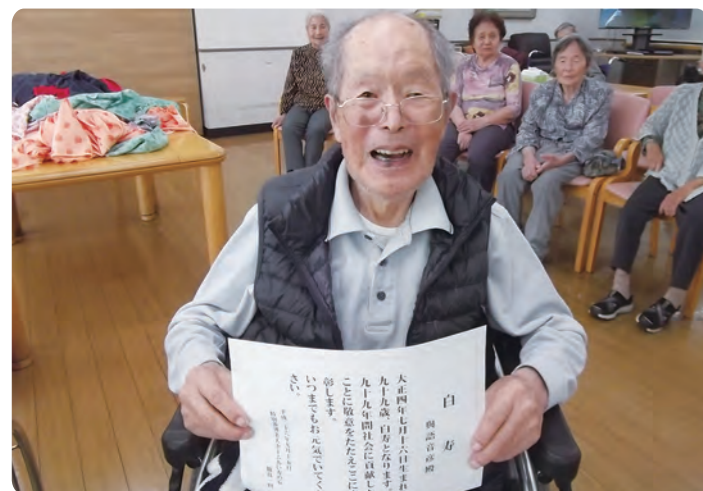 白 寿
與語音彦殿
大正四年七月十六日生まれ
九十九歳、白寿となります。
九十九年間社会に貢献し
ことに敬意をたたえここに
彰します。
いつまでもお元気でいてく
さい。